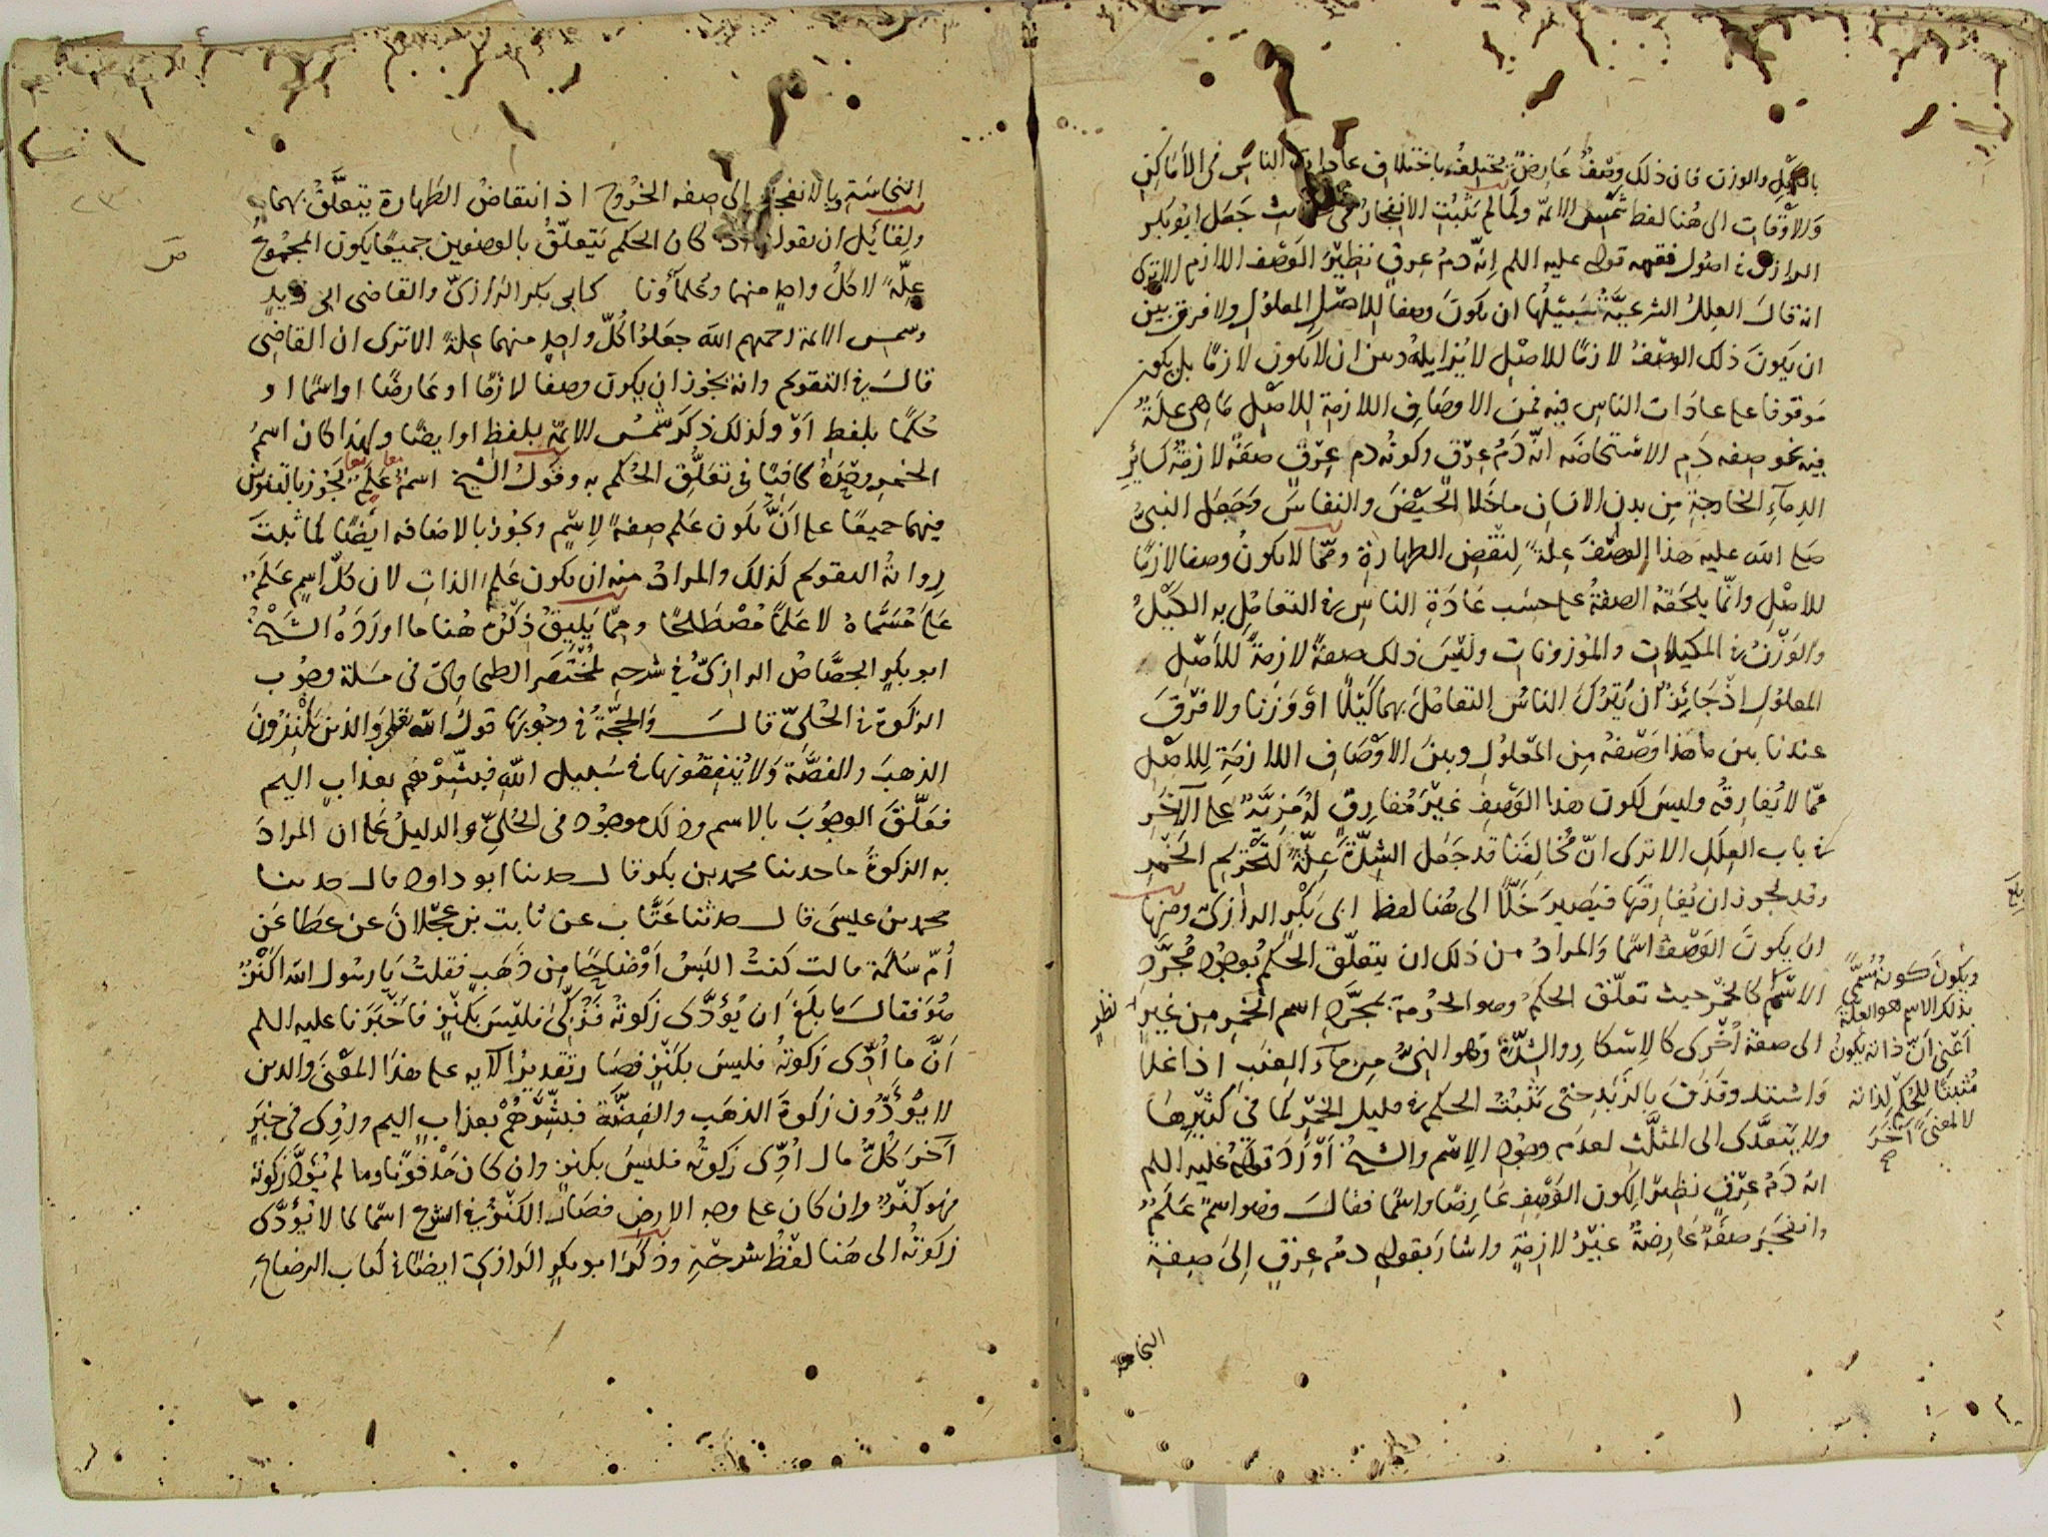 بالكيل والوزن فان ذلك وصف عارض يختلف باختلاف عادات الناس فى الأماكن
والأوقات الى هنا لفظ شمس الائمة ولما لم يثبت الانفجار فى جعل ابو بكر
الرازى فى اصول فقهه قوله عليه السلم إنه دم عرق نظير الوصف اللازم الا ترى
انه قال العلل الشرعية سبيلها ان يكون وصفا للاصل المعلول ولا فرق بين
ان يكون ذلك الوصف لازما للاصل لا يزايله وبين ان لا يكون لازما بل يكون
موقوفا على عادات الناس فيه فمن الاوصاف اللازمة للاصل ما هى علة
فيه نحو صفه دم الاستحاضه انه دم عرق وكونه دم عرق صفة لازمة كسائر
الدماء الخارجة من بدن الانسان ما خلا الحيض والنفاس وجعل النبى
صلى الله عليه هذا الوصف علة لنقض الطهارة ومما لا يكون وصفا لازما
للاصل وانما يلحقه الصفة على حسب عادة الناس فى التعامل به الكيل
والوزن فى المكيلات والموزونات وليس ذلك صفة لازمة للأصل
المعلول اذ جائز ان يترك الناس التعامل بهما كيلا او وزنا ولا فرق
عندنا بين ما هذا وصفه من المعلول وبين الاوصاف اللازمة للاصل
مما لا يفارقه وليس لكون هذا الوصف غير مفارق له مزية على الآخر
فى باب العلل الا ترى انّ مخالفنا قد جعل الشدة علة لتحريم الخمر
وقد يجوز ان يفارقها فيصير خلا الى هنا لفظ ابى بكر الرازى ومنها
ان يكون الوصف اسما والمراد من ذلك ان يتعلق الحكم بوجود مجرد
الاسم كالخمر حيث تعلق الحكم وهو الحرمة بمجرد اسم الخمر من غير نظر
الى صفة اخرى كالاسكار والشدة وهو النى من ماء العنب اذا غلا
واشتد وقذف بالزبد حتى يثبت الحكم فى قليل الخمر كما فى كثيرها
ولا يتعدى الى المثلث لعدم وجود الاسم والشيخ اورد قوله عليه السلم
انه دم عرق نظيرا لكون الوصف عارضا واسما فقال وهو اسم علم
وانفجر صفة عارضة غير لازمة واشار بقوله دم عرق إلى صفة
ويكون كونه مسمّى
بذلك الاسم هو العلة
أعنى أنّ ذاته يكون
مثبتا للحكم لذاته
لا لمعنى آخر
النجاسة
النجاسة وبالانفجار الى صفه الخروج اذ انتقاض الطهارة يتعلق بهما
ولقائل ان يقول كان الحكم يتعلق بالوصفين جميعا يكون المجموع
علة لا كل واحد منهما وعلماؤنا كابى بكر الرازى والقاضى ابى زيد
وشمس الائمة رحمهم الله جعلوا كلّ واحد منهما علة الا ترى ان القاضى
قال فى التقويم وانه يجوز ان يكون وصفا لازما او عارضا او اسما او
حكما بلفظ أو ولذلك ذكر شمس الائمة بلفظ او ايضا ولهذا كان اسم
الخمر وحده كافيا فى تعلق الحكم به وقول الشيخ اسم علم يجوز بالتنوين
فيهما جميعا على أنّ يكون علم صفة لاسم ويجوز بالاضافه ايضا كما ثبت
رواية التقويم كذلك والمراد منه ان يكون علم الذات لان كلّ اسم علم
على مسماه لا علما مصطلحا ومما يليق ذكره هنا ما اورده الشيخ
ابو بكر الجصاص الرازى فى شرحه لمختصر الطحاوى فى مسئلة وجوب
الزكوة فى الحلى قال والحجة فى وجوبها قول الله تعالى والذين يكنزون
الذهب والفضة ولا ينفقونها فى سبيل الله فبشرهم بعذاب اليم
فعلّق الوجوب بالاسم وذلك موجود فى الحلى والدليل على ان المراد
به الزكوة ما حدثنا محمد بن بكر قال حدثنا ابو داود قال حدثنا
محمد بن عيسى قال حدثنا عتاب عن ثابت بن عجلان عن عطا عن
أم سلمة قالت كنت البس أوضاحا من ذهب فقلت يا رسول الله اكنز
هو فقال ما بلغ ان يؤدّى زكوته فزكّى فليس بكنز فاخبرنا عليه السلم
أنّ ما أدّى زكوته فليس بكنز فصار تقدير الآيه على هذا المعنى والذين
لا يؤدّون زكوة الذهب والفضة فبشرهم بعذاب اليم وروى فى خبر
آخر كلّ مال أدّى زكوته فليس بكنز وان كان مدفونا وما لم يؤدّ زكوته
فهو كنز وان كان على وجه الارض فصار الكنز فى الشرع اسما لما لا يؤدى
زكوته الى هنا لفظ شرحه وذكر ابو بكر الرازى ايضا فى كتاب الرضاع